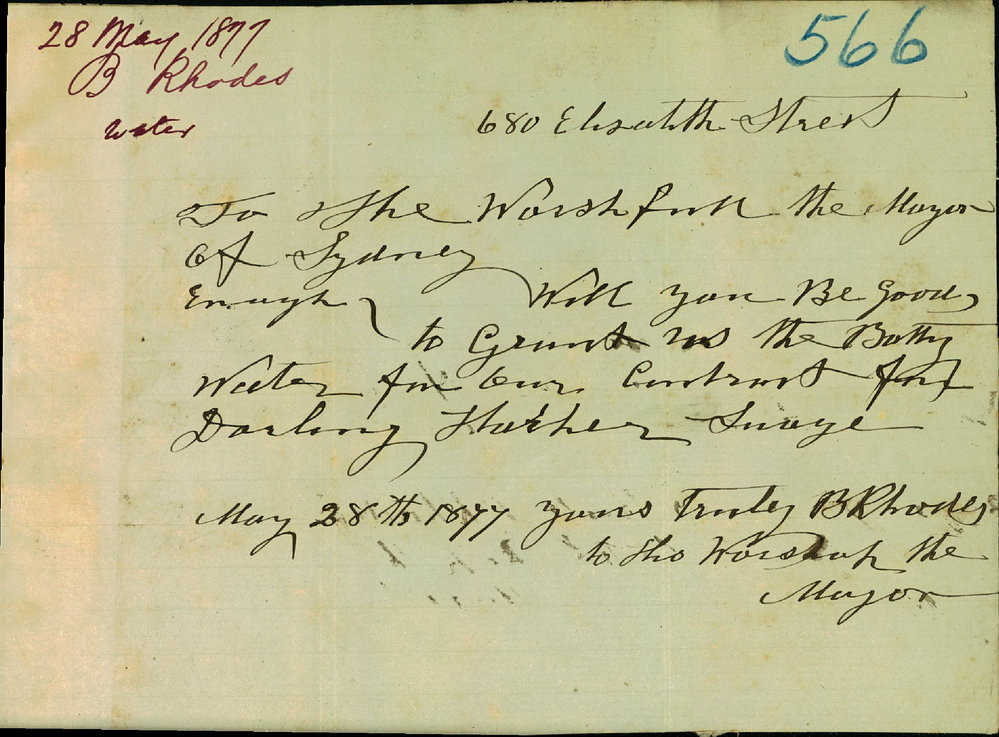 28 May 1877
B Rhodes
water
566
680 Elisabth Street
To The Worshfull the Mayor
Of Sydney
Enough Will you Be Good
to Grant us the Botty
Water for Our Contract for
Darling Harber Suage
May 28th 1877 yours Truley B Rhodes
to the Worshup the
Mayor